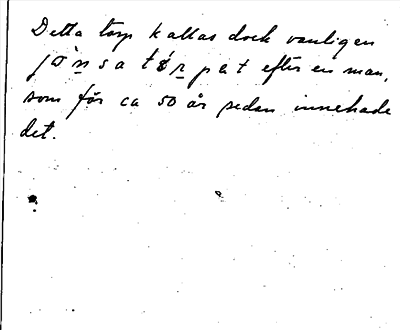 Detta torp kallas dock vanligen
jo̱nsatørpet efter en man,
som för ca 50 år sedan innehade
det.